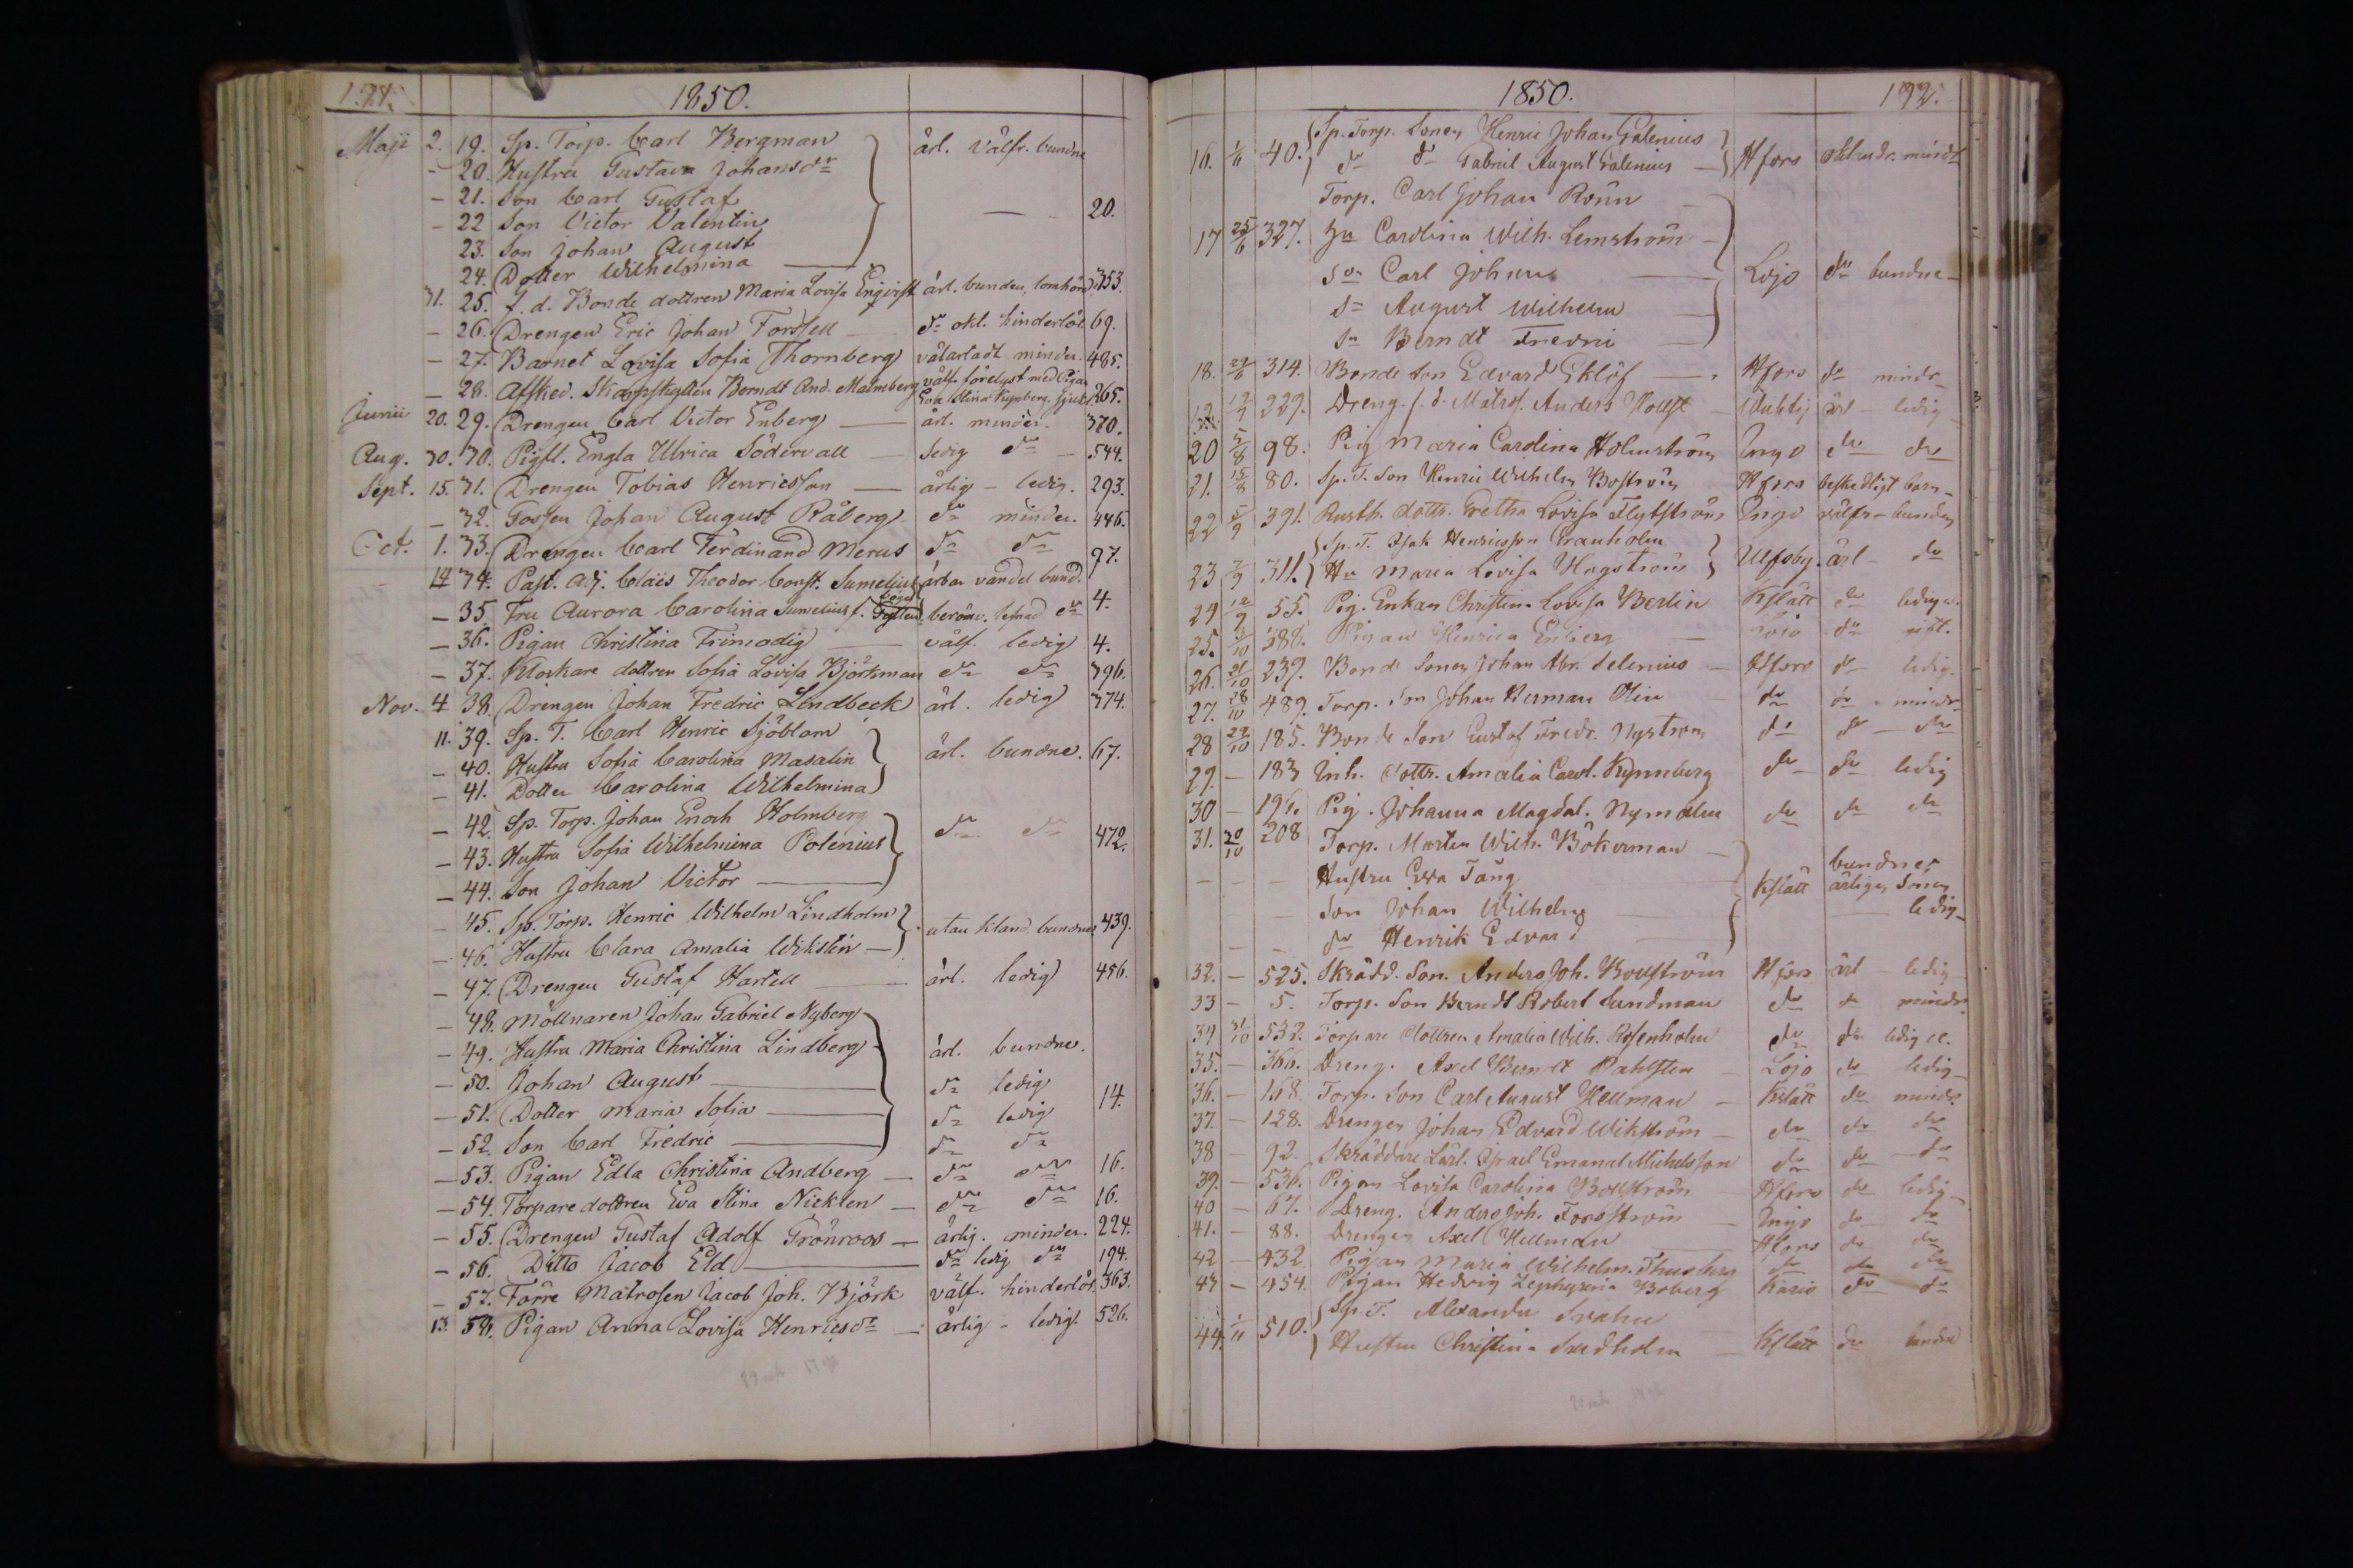 1850.
Maji 2. 19. Sp. Torp. Carl Bergman ärl. välfr. bundne
- 20. Hustru Gustava Johansdr
- 21. Son Carl Gustaf — 20.
- 22 Son Victor Valentin
23. Son Johan August
24. Dotter Wilhelmina
31. 25. f. d. Bonde dottren Maria Lovisa Enqvist ärl. bunden, 353.
- 26. Drengen Eric Johan Forssell dr okl. hinderlös 69.
- 27. Barnet Lovisa Sofia Thornberg välartadt minder. 485.
- 28. Afsked. Skarpskytten Berndt And. Malmberg välf. förelyst med Pigan Eva Stina 265.
Junii 20. 29. Drengen Carl Victor Enberg — ärl. minder. 370.
Aug. 30. 30. Pigfl. Engla Ulrica Södervall — ledig dr — 544.
Sept. 15. 31. Drengen Tobias Henricsson — ärlig - ledig. 293.
- 32. Gossen Johan August Råberg dr minder. 446.
Oct. 1. 33. Drengen Carl Ferdinand Merus dr dr 97.
14 34. Past. Adj. Claës Theodor Const. Sumelius ärbar vandel bund.
- 35. Fru Aurora Carolina Sumelius f. beröm. lefnad dr 4.
- 36. Pigan Christina Frimodig — välf. ledig 4.
- 37. Klockare dottren Sofia Lovisa Björkman dr dr 396.
Nov. 4 38. Drengen Johan Fredric Lindbeck ärl. ledig 374.
11. 39. Sp. T. Carl Henric Sjöblom
- 40. Hustru Sofia Carolina Masalin ärl. bundne. 67.
- 41. Dotter Carolina Wilhelmina
- 42. Sp. Torp. Johan Enoch Holmberg dr dr
- 43. Hustru Sofia Wilhelmina Polenius 472.
- 44. Son Johan Victor —
- 45. Sp. Torp. Henric Wilhelm Lindholm utan kland. bundne 439.
- 46. Hustru Clara Amalia Wikstén —
- 47. Drengen Gustaf Hartell ärl. ledig 456.
- 48. Möllnaren Johan Gabriel Nyberg
- 49. Hustru Maria Christina Lindberg ärl. bundne.
- 50. Johan August — dr ledig
- 51. Dotter Maria Sofia — dr ledig 14.
- 52. Son Carl Fredric — dr dr
- 53. Pigan Edla Christina Andberg — dr dr 16.
- 54. Torpare dottren Eva Stina Nicklen — dr dr 16.
- 55. Drengen Gustaf Adolf Grönroos — ärlig. minder. 224.
- 56. Ditto Jacob Eld — dr ledig dr 194.
- 57. Förre Matrosen Jacob Joh. Björk välf. hinderlös. 363.
13. 58. Pigan Anna Lovisa Henricsdr — ärlig - ledig. 526.
1850. 192.
16. 1/6 40. Sp. Torp. Sonen Henric Johan Galenius
dr dr Gabriel August Galenius — Hfors mindr
Torp. Carl Johan Rönn
17 25/6 327. Hu Carolina Wilh. Lemström
Son Carl Johan — Lojo dr bundne
Sn August Wilhelm
Sn Berndt Fredric
18. 29/6 314. Bonde Son Edvard Eklöf — Hfors dr mindr
229. Dreng. f. d. Matros. Anders Hollst — Wichtij ärl - ledig
20 5/8 98. Pig Maria Carolina Holmström Ingo dr dr
21. 15/8 80. Sp. T. Son Henric Wilhelm Boström Hfors beskedligt barn
22 5/9 391. Rusth. dottr. Gretha Lovisa Flytström Ingo välfr. bunden
Sp. T. Isak Henricsson Granholm
23 7/9 311. Hu Maria Lovisa Hagström Ulfsby. ärl dr
24 12/9 55. Pig. Enkan Christina Lovisa Berlin Kslätt dr ledig
25. 288. Pigan Henrica Enberg — Lojo dr
26. 21/10 239. Bonde Sonen Johan Abr. Selenius — Hfors dr ledig.
27. 28/10 489. Torp. Son Johan Herman Olin dr dr mindr
28 29/10 185. Bonde Son Gustaf Fredr. Nyström dr dr dr
29. — 183 Inh. dottr. Amalia Carol. Kynnberg dr dr ledig
30 — 196. Pig. Johanna Magdal. Nymalm dr dr dr
31. 30/10 208 Torp. Morten Wilh. Bökerman
— — — Hustru Eva Tång Kslätt bundne, ärlige, Sönen
Son Johan Wilhelm ledig
dr Henrik Edvard
32. — 525. Skrädd. Son. Anders Joh. Bollström Hfors ärl - ledig
33 — 5. Torp. Son Berndt Robert Sundman dr dr mindr
34 31/10 532. Torpare dottren Amalia Wilh. Rosenholm dr dr ledig
35. — 366. Dreng. Axel Berndt Pahlsten — Lojo dr ledig
36. — 168. Torp. Son Carl August Hellman — Kslätt dr mindr.
37. — 128. Drengen Johan Edvard Wikström — dr dr dr
38 — 92. Skräddare Lärl. Israel Emanuel Michelsson dr dr dr
39. — 536. Pigan Lovisa Carolina Bollström Hfors dr ledig
40 — 67. Dreng. Anders Joh. Forsström — Ingo dr dr
41. — 88. Drengen Axel Hellman — Hfors dr dr
42 — 432. Pigan Maria Wilhelm. Thusberg dr dr dr
43 — 454. Pigan Hedvig Zephyrina Boberg Karis dr dr
Sp. T. Alexander Svahn
44. 1/11 510. Hustru Christina Sundholm — Kslätt dr bundne